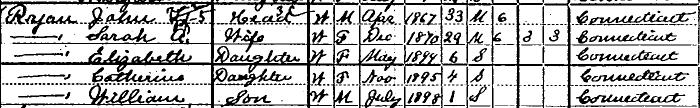 Ryan John F. Head W M Apr 1867 33 M 6 Connecticut
—, Sarah A. Wife W F Dec 1870 29 M 6 3 3 Connecticut
—, Elizabeth Daughter W F May 1894 6 S Connecticut
—, Catherine Daughter W F Nov 1895 4 S Connecticut
—, William Son W M July 1898 1 S Connecticut